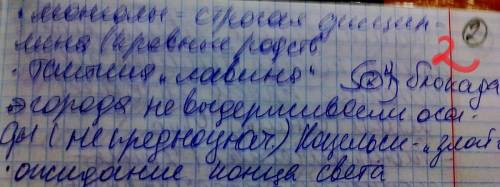 · монголы - строгая дисцип-
лина (кровное родств
· Тактика „лавина“ блокада
города не выдерживали оса-
ды (не предназнач.) Козельск - „злой
· ожидание конца света
2
2